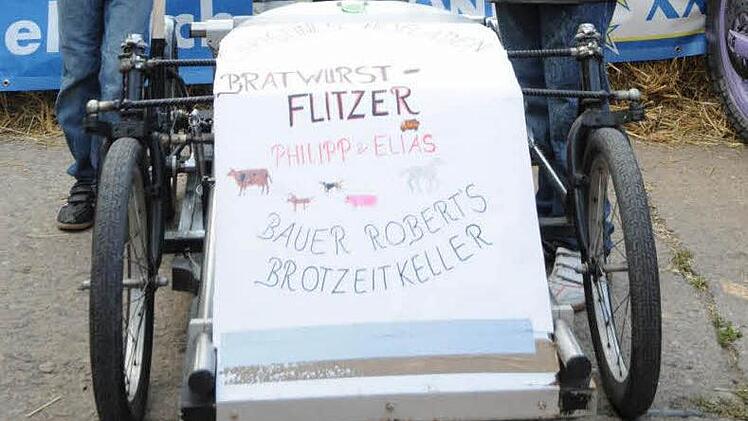 BRATWURST-
FLITZER
PHILIPP & ELIAS
BAUER ROBERT'S
BROTZEITKELLER